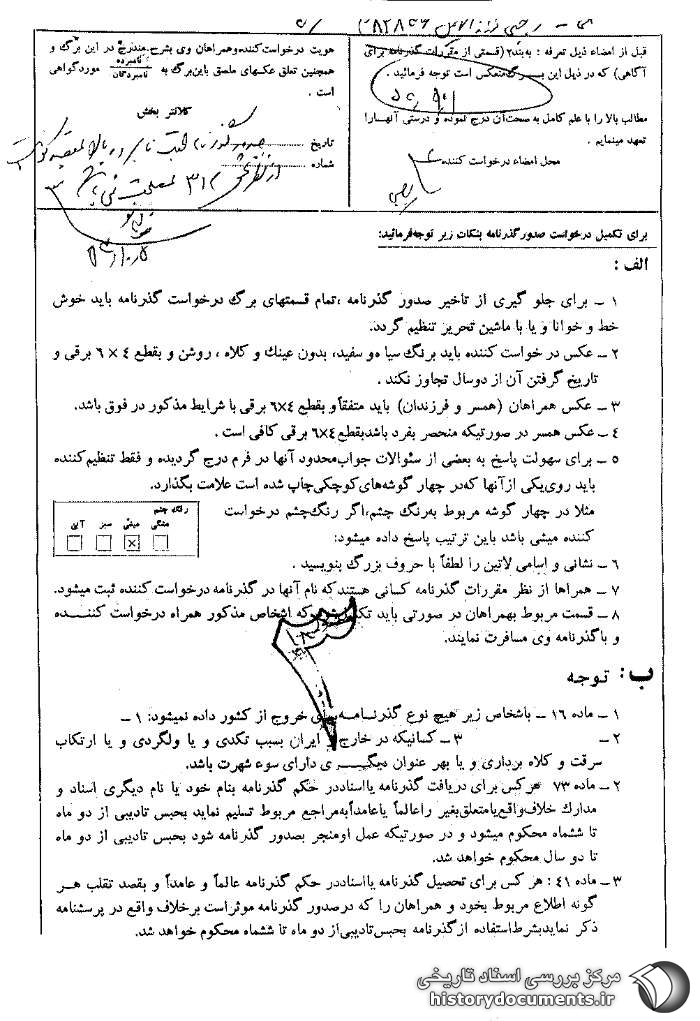 قبل از امضاء ذیل تعرفه : به‌بند۲ (قسمتی از مقررات گذرنامه برای
آگاهی) که در ذیل این برگ منعکس است توجه فرمائید .
مطالب بالا را با علم کامل به صحت‌آن درج نموده و درستی آنها را
تعهد مینمایم .
محل امضاء درخواست کننده
هویت درخواست‌کننده‌وهمراهان وی بشرح‌مندرج در این برگ و
همچنین تعلق عکسهای ملصق باین‌برگ به نامبرده / نامبردگان موردگواهی
است .
کلانتر بخش
تاریخ
شماره
برای تکمیل درخواست صدورگذرنامه بنکات زیر توجه‌فرمائید:
الف :
۱ ــ برای جلو گیری از تاخیر صدور گذرنامه ،تمام قسمتهای برگ درخواست گذرنامه باید خوش
خط و خوانا و یا با ماشین تحریز تنظیم گردد.
۲ ــ عکس در خواست کننده باید برنگ سیا ه‌و سفید، بدون عینک و کلاه ، روشن و بقطع ۴ × ۶ برقی و
تاریخ گرفتن آن از دوسال تجاوز نکند .
۳ ــ عکس همراهان (همسر و فرزندان) باید متفقاًو بقطع ۴×۶ برقی با شرایط مذکور در فوق باشد.
۴ ــ عکس همسر در صورتیکه منحصر بفرد باشدبقطع ۴×۶ برقی کافی است .
۵ ــ برای سهولت پاسخ به بعضی از سئوالات جواب‌محدود آنها در فرم درج گردیده و فقط تنظیم‌کننده
باید روی‌یکی ازآنها که‌در چهار گوشه‌های‌کوچکی‌چاپ شده است علامت بگذارد.
مثلا در چهار گوشه مربوط به‌رنگ چشم،اگر رنگ‌چشم درخواست
کننده میشی باشد باین ترتیب پاسخ داده میشود:
رنگ چشم
مشگی میشی سبز آبی
۶ ــ نشانی و اسامی لاتین را لطفاً با حروف بزرگ بنویسید .
۷ ــ همراها از نظر مقررات گذرنامه کسانی هستندکه نام آنها در گذرنامه درخواست کننده ثبت میشود.
۸ ــ قسمت مربوط بهمراهان در صورتی باید که اشخاص مذکور همراه درخواست کننده
و باگذرنامه وی مسافرت نمایند.
ب : توجه
۱ ــ ماده ۱۶ ــ باشخاص زیر هیچ نوع گذرنامه برای خروج از کشور داده نمیشود: ۱ ــ
۲ ــ ۳ ــ کسانیکه در خارج از ایران بسبب تکدی و یا ولگردی و یا ارتکاب
سرقت و کلاه برداری و یا بهر عنوان دیگری دارای سوء شهرت باشد.
۲ ــ ماده ۷۳ هرکس برای دریافت گذرنامه یااسناددر حکم گذرنامه بنام خود یا نام دیگری اسناد و
مدارک خلاف‌واقع‌یامتعلق‌بغیر راعالماً یاعامداًبه‌مراجع مربوط تسلیم نماید بحبس تادیبی از دو ماه
تا ششماه محکوم میشود و در صورتیکه عمل اومنجر بصدور گذرنامه شود بحبس تادیبی از دو ماه
تا دو سال محکوم خواهد شد.
۳ ــ ماده ۴۱ : هر کس برای تحصیل گذرنامه یااسناددر حکم گذرنامه عالماً و عامداً و بقصد تقلب هر
گونه اطلاع مربوط بخود و همراهان را که درصدور گذرنامه موثراست برخلاف واقع در پرسشنامه
ذکر نماید‌بشرط‌استفاده ازگذرنامه بحبس‌تادیبی‌از دو ماه تا ششماه محکوم خواهد شد.
مرکز بررسی اسناد تاریخی
historydocuments.ir